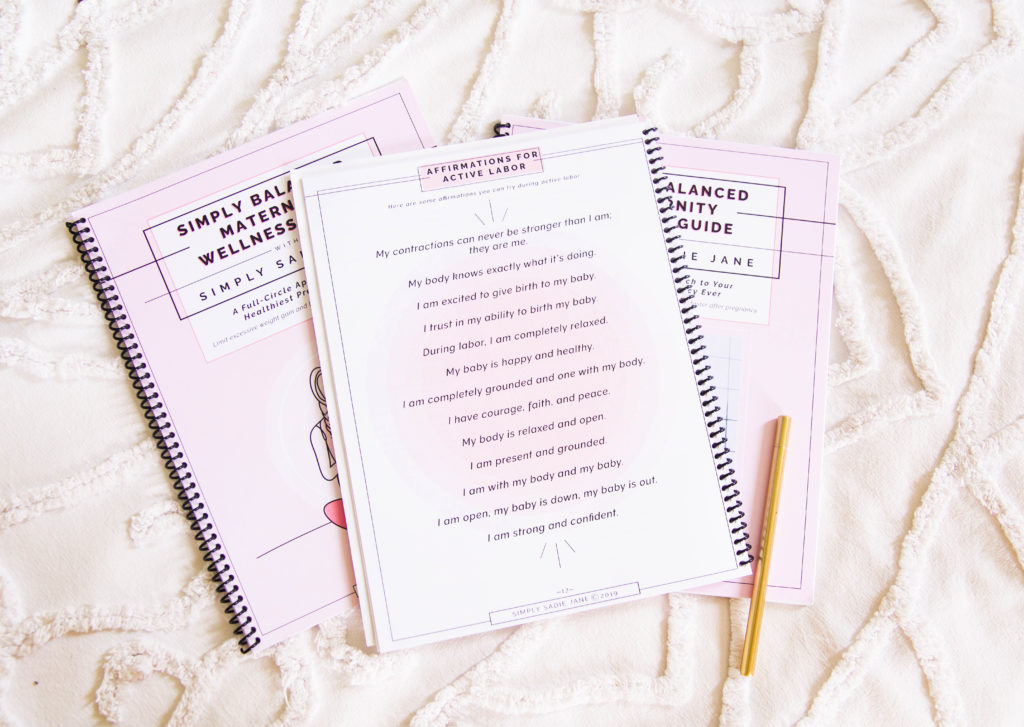 SIMPLY BALA
MATERN
WELLNESS
WITH
SIMPLY SA
A Full-Circle Ap
Healthiest Pr
Limit excessive weight gain and
AFFIRMATIONS FOR
ACTIVE LABOR
Here are some affirmations you can try during active labor.
My contractions can never be stronger than I am;
they are me.
My body knows exactly what it's doing.
I am excited to give birth to my baby.
I trust in my ability to birth my baby.
During labor, I am completely relaxed.
My baby is happy and healthy.
I am completely grounded and one with my body.
I have courage, faith, and peace.
My body is relaxed and open.
I am present and grounded.
I am with my body and my baby.
I am open, my baby is down, my baby is out.
I am strong and confident.
~17~
SIMPLY SADIE JANE ©2019
ALANCED
NITY
GUIDE
IE JANE
ch to Your
cy Ever
after pregnancy